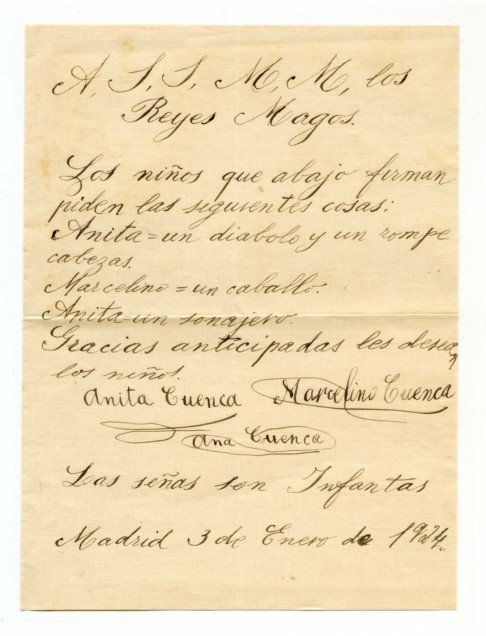 A, S, S, M, M, los
Reyes Magos.
Los niños que abajo firman
piden las siguientes cosas:
Anita = un diabolo y un rompe
cabezas.
Marcelino = un caballo.
Anita = un sonajero.
Gracias anticipadas les desean
los niños.
Anita Cuenca Marcelino Cuenca
Ana Cuenca
Las señas son Infantas
Madrid 3 de Enero de 1924.